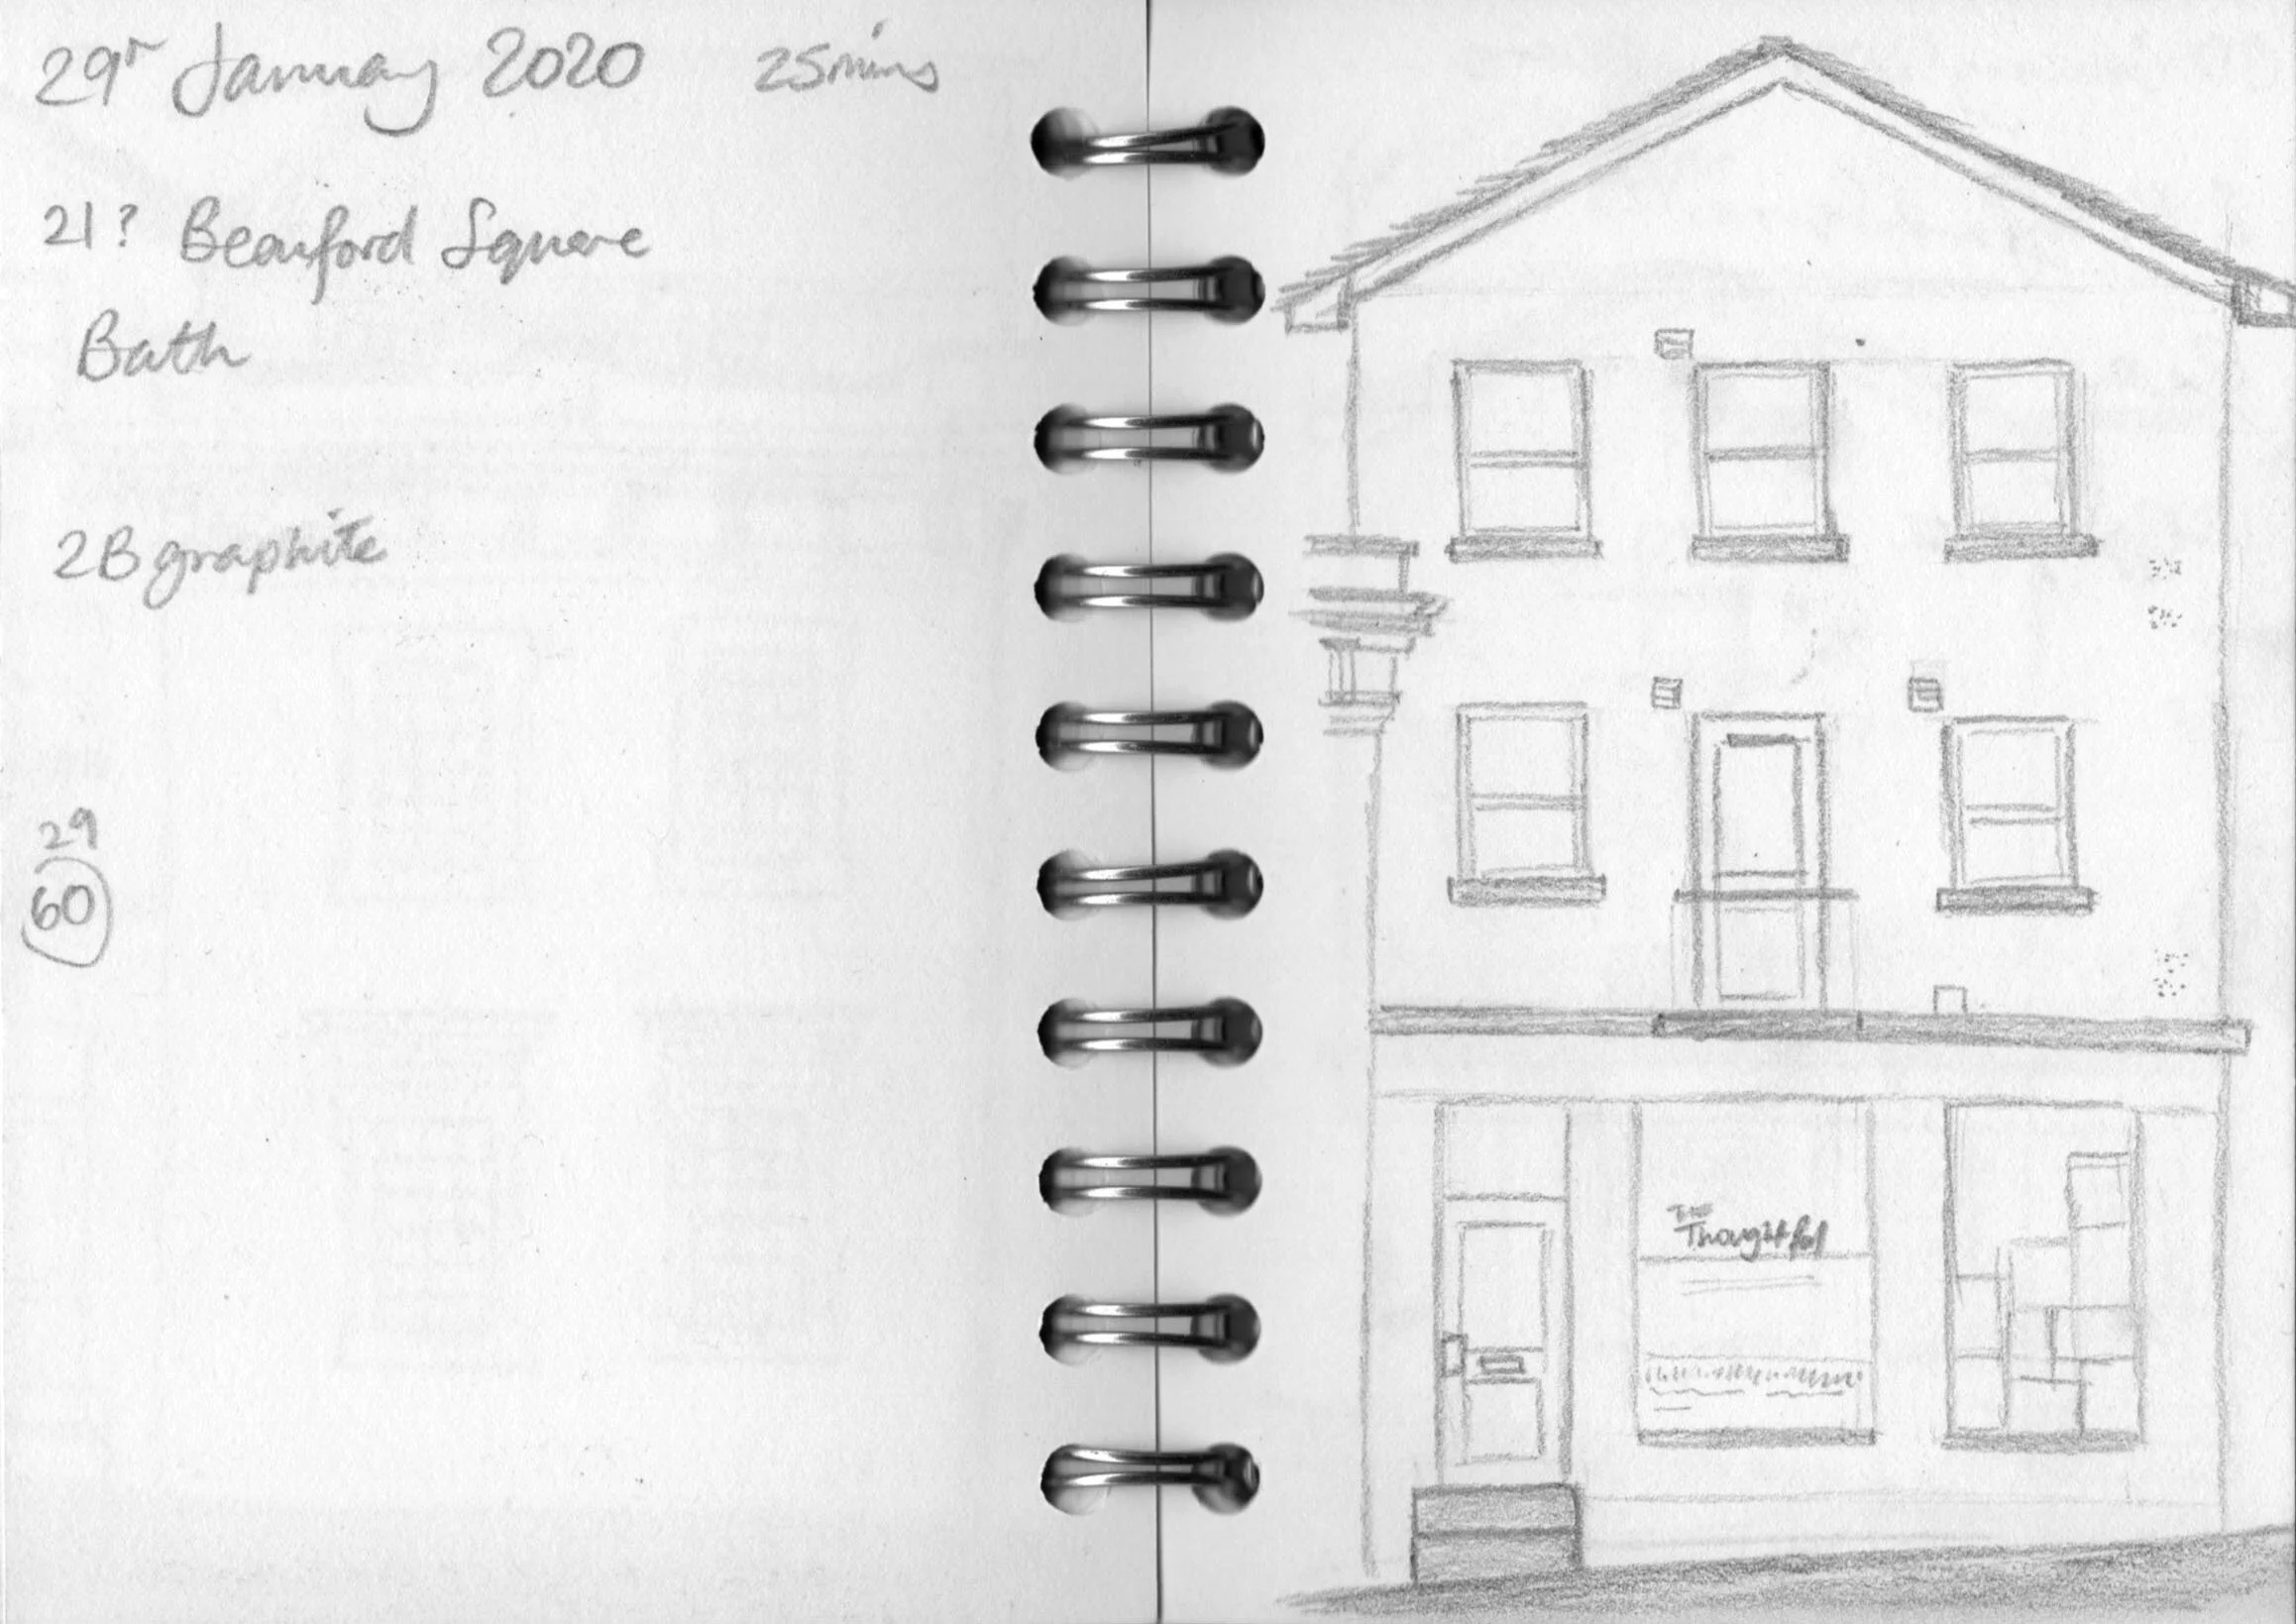 29th January 2020 25mins
21? Beauford Square
Bath
2B graphite
29
60
THE
Thoughtful